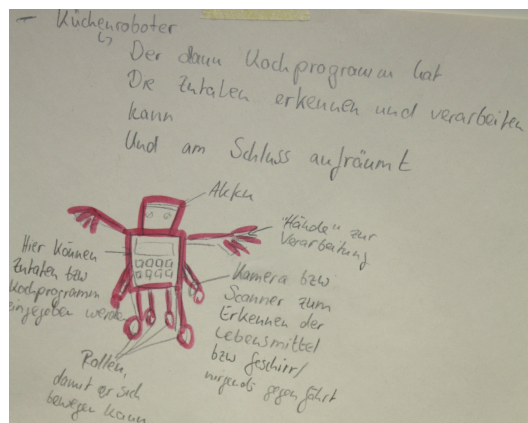 - Küchenroboter
↳ Der dann Kochprogramm hat
Die Zutaten erkennen und verarbeiten
kann
Und am Schluss aufräumt
"Hände" zur
Verarbeitung
Hier können
Zutaten bzw
Kochprogramm
eingegeben werden
Kamera bzw
Scanner zum
Erkennen der
Lebensmittel
bzw Geschirr/
nirgends gegen fährt
Rollen,
damit er sich
bewegen kann